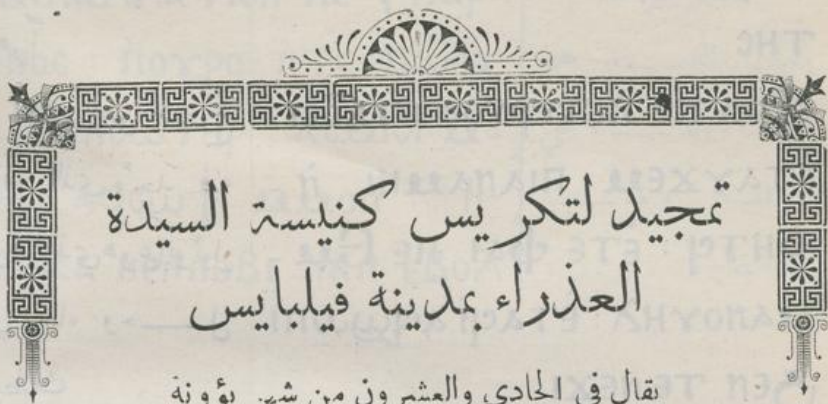 تمجيد لتكريس كنيسة السيدة
العذراء بمدينة فيلبايس
تقال في الحادي والعشرون من شهر بؤونة